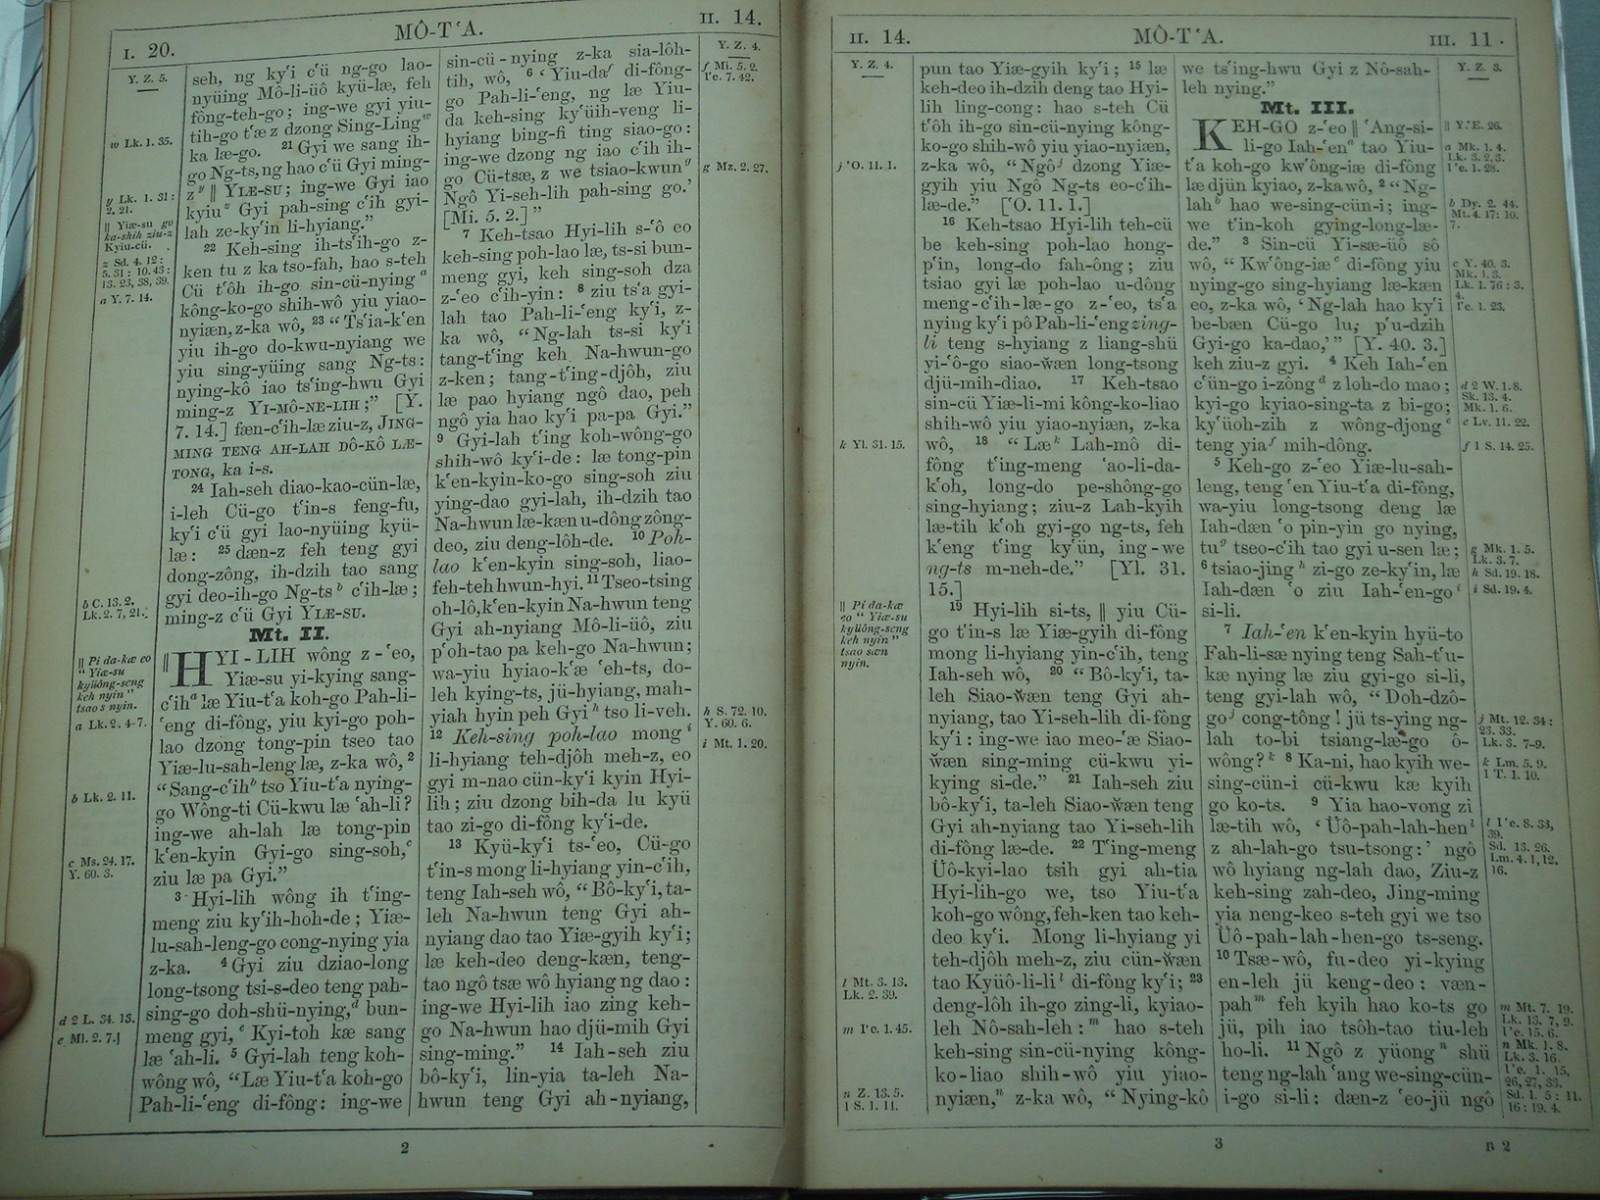 I. 20.
MÔ-TʻA.
II. 14.
Y. Z. 5.
w Lk. 1. 35.
y Lk. 1. 31 :
2. 21.
|| Yiæ-su go
ka-shih ziu-z
Kyiu-cü.
z Sd. 4. 12 :
5. 31 : 10. 43 :
13. 23, 38, 39.
a Y. 7. 14.
b C. 13. 2.
Lk. 2. 7, 21.
|| Pi da-kæ eo
“ Yiæ-su
kyüông-seng
keh nyin ”
tsao s nyin.
a Lk. 2. 4-7.
b Lk. 2. 11.
c Ms. 24. 17.
Y. 60. 3.
d 2 L. 34. 13.
e Ml. 2. 7.
seh, ng kyʻi cʻü ng-go lao-
nyüing Mô-li-üô kyü-læ, feh
fông-teh-go ; ing-we gyi yiu-
tih-go tʻæ z dzong Sing-Ling w
ka læ-go. 21 Gyi we sang ih-
go Ng-ts, ng hao cʻü Gyi ming-
z y || YIÆ-SU ; ing-we Gyi iao
kyiu z Gyi pah-sing cʻih gyi-
lah ze-kyʻin li-hyiang.”
22 Keh-sing ih-tsʻih-go z-
ken tu z ka tso-fah, hao s-teh
Cü tʻôh ih-go sin-cü-nying a
kông-ko-go shih-wô yiu yiao-
nyiæn, z-ka wô, 23 “ Tsʻia-kʻen
yiu ih-go do-kwu-nyiang we
yiu sing-yüing sang Ng-ts :
nying-kô iao tsʻing-hwu Gyi
ming-z YI-MÔ-NE-LIH ;” [Y.
7. 14.] fæn-cʻih-læ ziu-z, JING-
MING TENG AH-LAH DÔ-KÔ LÆ-
TONG, ka i-s.
24 Iah-seh diao-kao-cün-læ,
i-leh Cü-go tʻin-s feng-fu,
kyʻi cʻü gyi lao-nyüing kyü-
læ : 25 dæn-z feh teng gyi
dong-zông, ih-dzih tao sang
gyi deo-ih-go Ng-ts b cʻih-læ ;
ming-z cʻü Gyi YIÆ-SU.
Mt. II.
|| HYI-LIH wông z-ʻeo,
Yiæ-su yi-kying sang-
cʻih a læ Yiu-tʻa koh-go Pah-li-
ʻeng di-fông, yiu kyi-go poh-
lao dzong tong-pin tseo tao
Yiæ-lu-sah-leng læ, z-ka wô, 2
“ Sang-cʻih b tso Yiu-tʻa nying-
go Wông-ti Cü-kwu læ ʻah-li ?
ing-we ah-lah læ tong-pin
kʻen-kyin Gyi-go sing-soh, c
ziu læ pa Gyi.”
3 Hyi-lih wông ih tʻing-
meng ziu kyʻih-hoh-de ; Yiæ-
lu-sah-leng-go cong-nying yia
z-ka. 4 Gyi ziu dziao-long
long-tsong tsi-s-deo teng pah-
sing-go doh-shü-nying, d bun-
meng gyi, e Kyi-toh kæ sang
læ ʻah-li. 5 Gyi-lah teng koh-
wông wô, “ Læ Yiu-tʻa koh-go
Pah-li-ʻeng di-fông : ing-we
sin-cü-nying z-ka sia-lôh-
tih, wô, 6 ‘ Yiu-da f di-fông-
go Pah-li-ʻeng, ng læ Yiu-
da keh-sing kyʻüih-veng li-
hyiang bing-fi ting siao-go :
ing-we dzong ng iao cʻih ih-
go Cü-tsæ, z we tsiao-kwun g
Ngô Yi-seh-lih pah-sing go.’
[Mi. 5. 2.] ”
7 Keh-tsao Hyi-lih s-ʻô eo
keh-sing poh-lao læ, ts-si bun-
meng gyi, keh sing-soh dza
z-ʻeo cʻih-yin : 8 ziu tsʻa gyi-
lah tao Pah-li-ʻeng kyʻi, z-
ka wô, “ Ng-lah ts-si kyʻi
tang-tʻing keh Na-hwun-go
z-ken ; tang-tʻing-djôh, ziu
læ pao hyiang ngô dao, peh
ngô yia hao kyʻi pa-pa Gyi.”
9 Gyi-lah tʻing koh-wông-go
shih-wô kyʻi-de : læ tong-pin
kʻen-kyin-ko-go sing-soh ziu
ying-dao gyi-lah, ih-dzih tao
Na-hwun læ-kæn u-dông zông-
deo, ziu deng-lôh-de. 10 Poh-
lao kʻen-kyin sing-soh, liao-
feh-teh hwun-hyi. 11 Tseo-tsing
oh-lô, kʻen-kyin Na-hwun teng
Gyi ah-nyiang Mô-li-üô, ziu
pʻoh-tao pa keh-go Na-hwun ;
wa-yiu hyiao-kʻæ ʻeh-ts, do-
leh kying-ts, jü-hyiang, mah-
yiah hyin peh Gyi h tso li-veh.
12 Keh-sing poh-lao mong i
li-hyiang teh-djôh meh-z, eo
gyi m-nao cün-kyʻi kyin Hyi-
lih ; ziu dzong bih-da lu kyü
tao zi-go di-fông kyʻi-de.
13 Kyü-kyʻi ts-ʻeo, Cü-go
tʻin-s mong li-hyiang yin-cʻih,
teng Iah-seh wô, “ Bô-kyʻi, ta-
leh Na-hwun teng Gyi ah-
nyiang dao tao Yiæ-gyih kyʻi ;
læ keh-deo deng-kæn, teng-
tao ngô tsæ wô hyiang ng dao :
ing-we Hyi-lih iao zing keh-
go Na-hwun hao djü-mih Gyi
sing-ming.” 14 Iah-seh ziu
bô-kyʻi, lin-yia ta-leh Na-
hwun teng Gyi ah-nyiang,
Y. Z. 4.
f Mi. 5. 2.
Iʻe. 7. 42.
g Mz. 2. 27.
h S. 72. 10.
Y. 60. 6.
i Mt. 1. 20.
2
II. 14.
MÔ-TʻA.
III. 11.
Y. Z. 4.
j ʻO. 11. 1.
k Yl. 31. 15.
|| Pi da-kæ
eo “ Yiæ-su
kyüông-seng
keh nyin ”
tsao sæn
nyin.
l Mt. 3. 13.
Lk. 2. 39.
m Iʻe. 1. 45.
n Z. 13. 5.
1 S. 1. 11.
pun tao Yiæ-gyih kyʻi ; 15 læ
keh-deo ih-dzih deng tao Hyi-
lih ling-cong : hao s-teh Cü
tʻôh ih-go sin-cü-nying kông-
ko-go shih-wô yiu yiao-nyiæn,
z-ka wô, “ Ngô j dzong Yiæ-
gyih yiu Ngô Ng-ts eo-cʻih-
læ-de.” [ʻO. 11. 1.]
16 Keh-tsao Hyi-lih teh-cü
be keh-sing poh-lao hong-
pʻin, long-do fah-ông ; ziu
tsiao gyi læ poh-lao u-dông
meng-cʻih-læ-go z-ʻeo, tsʻa
nying kyʻi pô Pah-li-ʻeng zing-
li teng s-hyiang z liang-shü
yi-ʻô-go siao-w̌æn long-tsong
djü-mih-diao. 17 Keh-tsao
sin-cü Yiæ-li-mi kông-ko-liao
shih-wô yiu yiao-nyiæn, z-ka
wô, 18 “ Læ k Lah-mô di-
fông tʻing-meng ʻao-li-da-
kʻoh, long-do pe-shông-go
sing-hyiang ; ziu-z Lah-kyih
læ-tih kʻoh gyi-go ng-ts, feh
kʻeng tʻing kyʻün, ing-we
ng-ts m-neh-de.” [Yl. 31.
15.]
19 Hyi-lih si-ts, || yiu Cü-
go tʻin-s læ Yiæ-gyih di-fông
mong li-hyiang yin-cʻih, teng
Iah-seh wô, 20 “ Bô-kyʻi, ta-
leh Siao-w̌æn teng Gyi ah-
nyiang, tao Yi-seh-lih di-fông
kyʻi : ing-we iao meo-ʻæ Siao-
w̌æn sing-ming cü-kwu yi-
kying si-de.” 21 Iah-seh ziu
bô-kyʻi, ta-leh Siao-w̌æn teng
Gyi ah-nyiang tao Yi-seh-lih
di-fông læ-de. 22 Tʻing-meng
Üô-kyi-lao tsih gyi ah-tia
Hyi-lih-go we, tso Yiu-tʻa
koh-go wông, feh-ken tao keh-
deo kyʻi. Mong li-hyiang yi
teh-djôh meh-z, ziu cün-w̌æn
tao Kyüô-li-li l di-fông kyʻi ; 23
deng-lôh ih-go zing-li, kyiao-
leh Nô-sah-leh : m hao s-teh
keh-sing sin-cü-nying kông-
ko-liao shih-wô yiu yiao-
nyiæn, n z-ka wô, “ Nying-kô
we tsʻing-hwu Gyi z Nô-sah-
leh nying.”
Mt. III.
KEH-GO z-ʻeo || ʻAng-si-
li-go Iah-ʻen a tao Yiu-
tʻa koh-go kwʻông-iæ di-fông
læ djün kyiao, z-ka wô, 2 “ Ng-
lah b hao we-sing-cün-i ; ing-
we tʻin-koh gying-long-læ-
de.” 3 Sin-cü Yi-sæ-üô sô
wô, “ Kwʻông-iæ c di-fông yiu
nying-go sing-hyiang læ-kæn
eo, z-ka wô, ‘ Ng-lah hao kyʻi
be-bæn Cü-go lu, pʻu-dzih
Gyi-go ka-dao,’ ” [Y. 40. 3.]
keh ziu-z gyi. 4 Keh Iah-ʻen
cʻün-go i-zông d z loh-do mao ;
kyi-go kyiao-sing-ta z bi-go ;
kyʻüoh-zih z wông-djong e
teng yia f mih-dông.
5 Keh-go z-ʻeo Yiæ-lu-sah-
leng, teng ʻen Yiu-tʻa di-fông,
wa-yiu long-tsong deng læ
Iah-dæn ʻo pin-yin go nying,
tu g tseo-cʻih tao gyi u-sen læ ;
6 tsiao-jing h zi-go ze-kyʻin, læ
Iah-dæn ʻo ziu Iah-ʻen-go i
si-li.
7 Iah-ʻen kʻen-kyin hyü-to
Fah-li-sæ nying teng Sah-tʻu-
kæ nying læ ziu gyi-go si-li,
teng gyi-lah wô, “ Doh-dzô-
go j cong-tông ! jü ts-ying ng-
lah to-bi tsiang-læ-go ô-
wông ? k 8 Ka-ni, hao kyih we-
sing-cün-i cü-kwu kæ kyih
go ko-ts. 9 Yia hao-vong zi
læ-tih wô, ‘ Üô-pah-lah-hen l
z ah-lah-go tsu-tsong :’ ngô
wô hyiang ng-lah dao, Ziu-z
keh-sing zah-deo, Jing-ming
yia neng-keo s-teh gyi we tso
Üô-pah-lah-hen-go ts-seng.
10 Tsæ-wô, fu-deo yi-kying
en-leh jü keng-deo : væn-
pah m feh kyih hao ko-ts go
jü, pih iao tsôh-tao tiu-leh
ho-li. 11 Ngô z yüong n shü
teng ng-lah ʻang we-sing-cün-
i-go si-li : dæn-z ʻeo-jü ngô
Y. Z. 3.
|| Y. ʻE. 26.
a Mk. 1. 4.
Lk. 3. 2, 3.
Iʻe. 1. 28.
b Dy. 2. 44.
Mt. 4. 17 : 10.
7.
c Y. 40. 3.
Mk. 1. 3.
Lk. 1. 76 : 3.
4.
Iʻe. 1. 23.
d 2 W. 1. 8.
Sk. 13. 4.
Mk. 1. 6.
e Lv. 11. 22.
f 1 S. 14. 25.
g Mk. 1. 5.
Lk. 3. 7.
h Sd. 19. 18.
i Sd. 19. 4.
j Mt. 12. 34 :
23. 33.
Lk. 3. 7-9.
k Lm. 5. 9.
1 T. 1. 10.
l Iʻe. 8. 33,
39.
Sd. 13. 26.
Lm. 4. 1, 12,
16.
m Mt. 7. 19.
Lk. 13. 7, 9.
Iʻe. 15. 6.
n Mk. 1. 8.
Lk. 3. 16.
Iʻe. 1. 15,
26, 27, 33.
Sd. 1. 5 : 11.
16 : 19. 4.
3
B 2